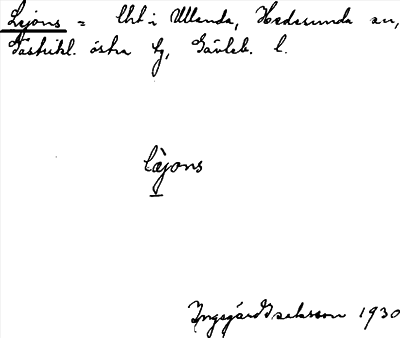 Lejons = Uht i Ullanda, Hedesunda sn,
Gästrikl. östra tg, Gävleb. l.
lèjons
Yngsgärd Isaksson 1930